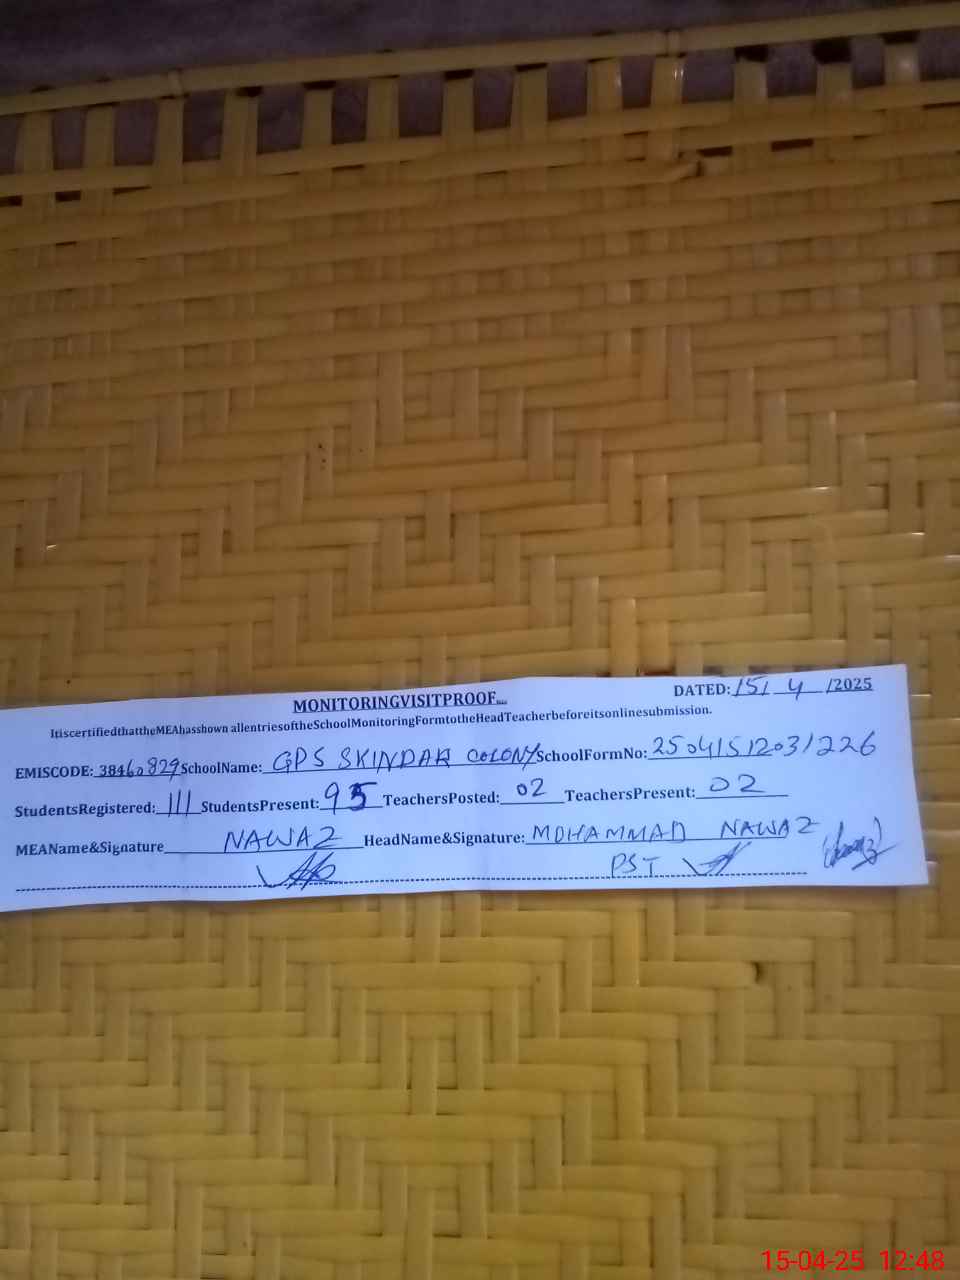 MONITORINGVISITPROOF
DATED: 15/ 4 /2025
ItiscertifiedthattheMEAhasshown allentriesoftheSchoolMonitoringFormtotheHeadTeacherbeforeitsonlinesubmission.
EMISCODE: 38460829 SchoolName: GPS SKINDAR COLONY SchoolFormNo: 25041512031226
StudentsRegistered: 111 StudentsPresent: 95 TeachersPosted: 02 TeachersPresent: 02
MEAName&Signature NAWAZ HeadName&Signature: MOHAMMAD NAWAZ
PST
15-04-25 12:48